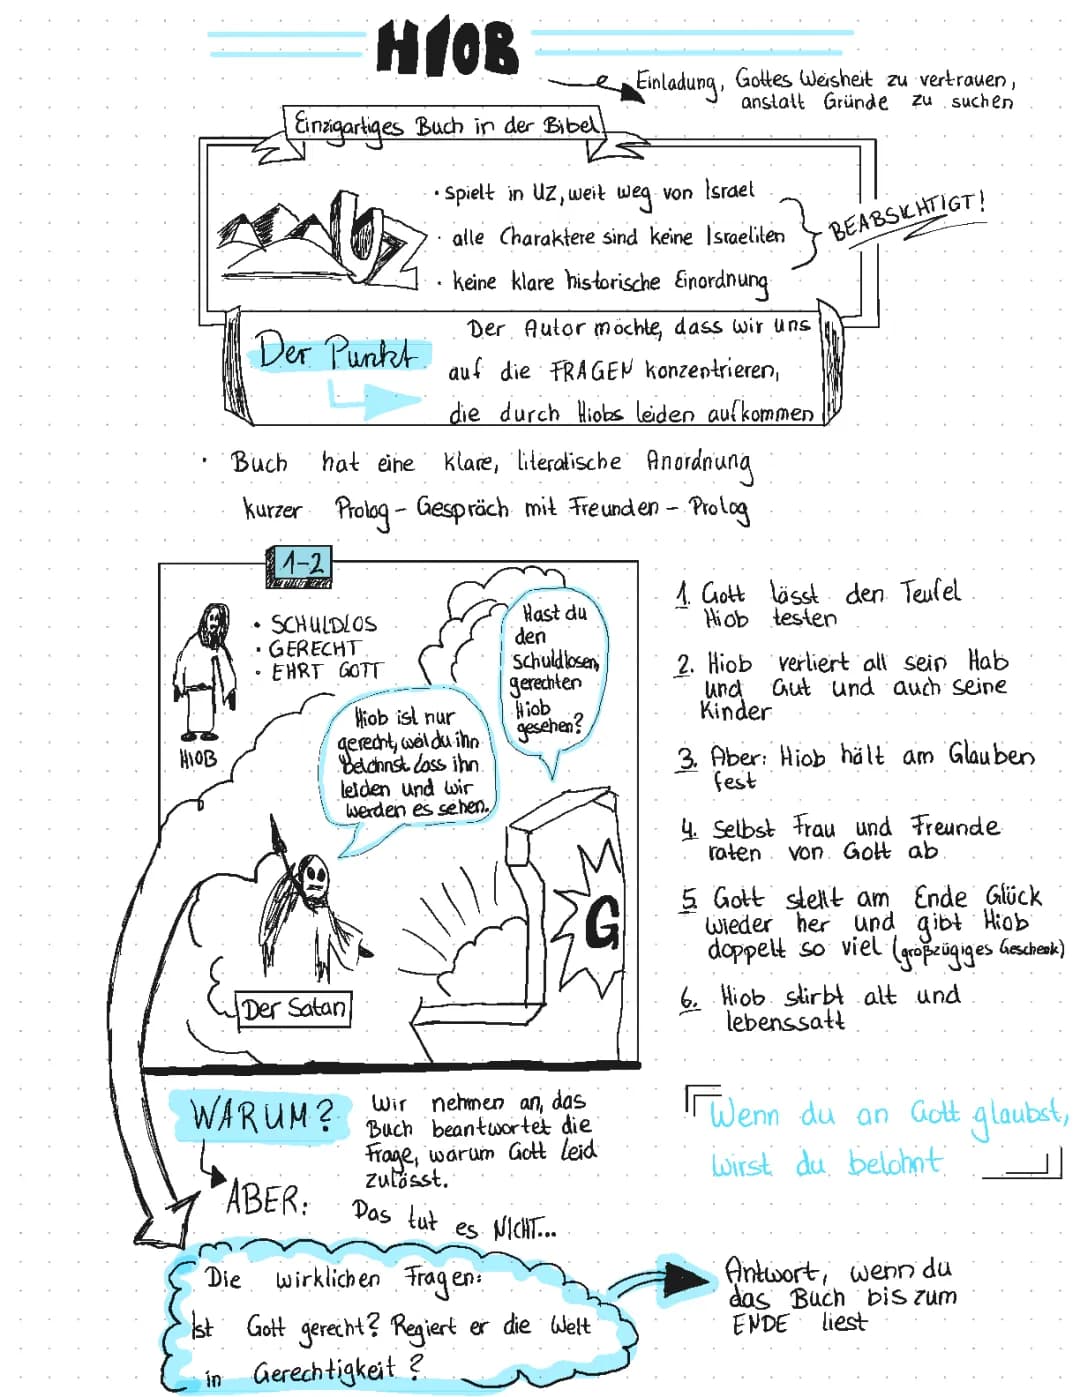 HIOB
Einladung, Gottes Weisheit zu vertrauen,
anstatt Gründe zu suchen
Einzigartiges Buch in der Bibel
• spielt in UZ, weit weg von Israel
• alle Charaktere sind keine Israeliten
• keine klare historische Einordnung
BEABSICHTIGT!
UZ
Der Punkt
Der Autor möchte, dass wir uns
auf die FRAGEN konzentrieren,
die durch Hiobs leiden aufkommen
• Buch hat eine klare, literatische Anordnung
kurzer Prolog – Gespräch mit Freunden – Prolog
1-2
• SCHULDLOS
• GERECHT
• EHRT GOTT
HIOB
Hast du
den
Schuldlosen,
gerechten
Hiob
gesehen?
Hiob ist nur
gerecht, weil du ihn
belohnst. Lass ihn
leiden und wir
werden es sehen.
G
Der Satan
1. Gott lässt den Teufel
Hiob testen
2. Hiob verliert all sein Hab
und Gut und auch seine
Kinder
3. Aber: Hiob hält am Glauben
fest
4. Selbst Frau und Freunde
raten von Gott ab
5 Gott stellt am Ende Glück
wieder her und gibt Hiob
doppelt so viel (großzügiges Geschenk)
6. Hiob stirbt alt und
lebenssatt
WARUM?
Wir nehmen an, das
Buch beantwortet die
Frage, warum Gott Leid
zulässt.
ABER:
Das tut es NICHT...
Wenn du an Gott glaubst,
wirst du belohnt
Die wirklichen Fragen:
Ist Gott gerecht? Regiert er die Welt
in Gerechtigkeit?
Antwort, wenn du
das Buch bis zum
ENDE liest